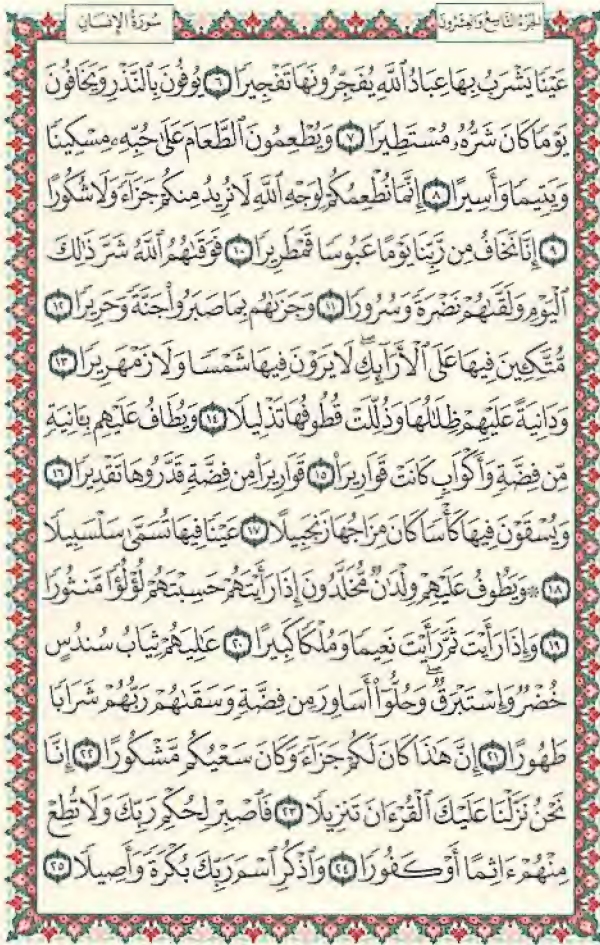 الجُزْءُ التَّاسِعُ وَالعِشْرُونَ سُورَةُ الإِنسَانِ
عَيْنًا يَشْرَبُ بِهَا عِبَادُ ٱللَّهِ يُفَجِّرُونَهَا تَفْجِيرًا ٦ يُوفُونَ بِٱلنَّذْرِ وَيَخَافُونَ
يَوْمًا كَانَ شَرُّهُۥ مُسْتَطِيرًا ٧ وَيُطْعِمُونَ ٱلطَّعَامَ عَلَىٰ حُبِّهِۦ مِسْكِينًا
وَيَتِيمًا وَأَسِيرًا ٨ إِنَّمَا نُطْعِمُكُمْ لِوَجْهِ ٱللَّهِ لَا نُرِيدُ مِنكُمْ جَزَآءً وَلَا شُكُورًا
٩ إِنَّا نَخَافُ مِن رَّبِّنَا يَوْمًا عَبُوسًا قَمْطَرِيرًا ١٠ فَوَقَىٰهُمُ ٱللَّهُ شَرَّ ذَٰلِكَ
ٱلْيَوْمِ وَلَقَّىٰهُمْ نَضْرَةً وَسُرُورًا ١١ وَجَزَىٰهُم بِمَا صَبَرُوا۟ جَنَّةً وَحَرِيرًا ١٢
مُّتَّكِـِٔينَ فِيهَا عَلَى ٱلْأَرَآئِكِ ۖ لَا يَرَوْنَ فِيهَا شَمْسًا وَلَا زَمْهَرِيرًا ١٣
وَدَانِيَةً عَلَيْهِمْ ظِلَٰلُهَا وَذُلِّلَتْ قُطُوفُهَا تَذْلِيلًا ١٤ وَيُطَافُ عَلَيْهِم بِـَٔانِيَةٍ
مِّن فِضَّةٍ وَأَكْوَابٍ كَانَتْ قَوَارِيرَا۠ ١٥ قَوَارِيرَا۟ مِن فِضَّةٍ قَدَّرُوهَا تَقْدِيرًا ١٦
وَيُسْقَوْنَ فِيهَا كَأْسًا كَانَ مِزَاجُهَا زَنجَبِيلًا ١٧ عَيْنًا فِيهَا تُسَمَّىٰ سَلْسَبِيلًا
١٨ ۞ وَيَطُوفُ عَلَيْهِمْ وِلْدَٰنٌ مُّخَلَّدُونَ إِذَا رَأَيْتَهُمْ حَسِبْتَهُمْ لُؤْلُؤًا مَّنثُورًا
١٩ وَإِذَا رَأَيْتَ ثَمَّ رَأَيْتَ نَعِيمًا وَمُلْكًا كَبِيرًا ٢٠ عَٰلِيَهُمْ ثِيَابُ سُندُسٍ
خُضْرٌ وَإِسْتَبْرَقٌ ۖ وَحُلُّوٓا۟ أَسَاوِرَ مِن فِضَّةٍ وَسَقَىٰهُمْ رَبُّهُمْ شَرَابًا
طَهُورًا ٢١ إِنَّ هَٰذَا كَانَ لَكُمْ جَزَآءً وَكَانَ سَعْيُكُم مَّشْكُورًا ٢٢ إِنَّا
نَحْنُ نَزَّلْنَا عَلَيْكَ ٱلْقُرْءَانَ تَنزِيلًا ٢٣ فَٱصْبِرْ لِحُكْمِ رَبِّكَ وَلَا تُطِعْ
مِنْهُمْ ءَاثِمًا أَوْ كَفُورًا ٢٤ وَٱذْكُرِ ٱسْمَ رَبِّكَ بُكْرَةً وَأَصِيلًا ٢٥